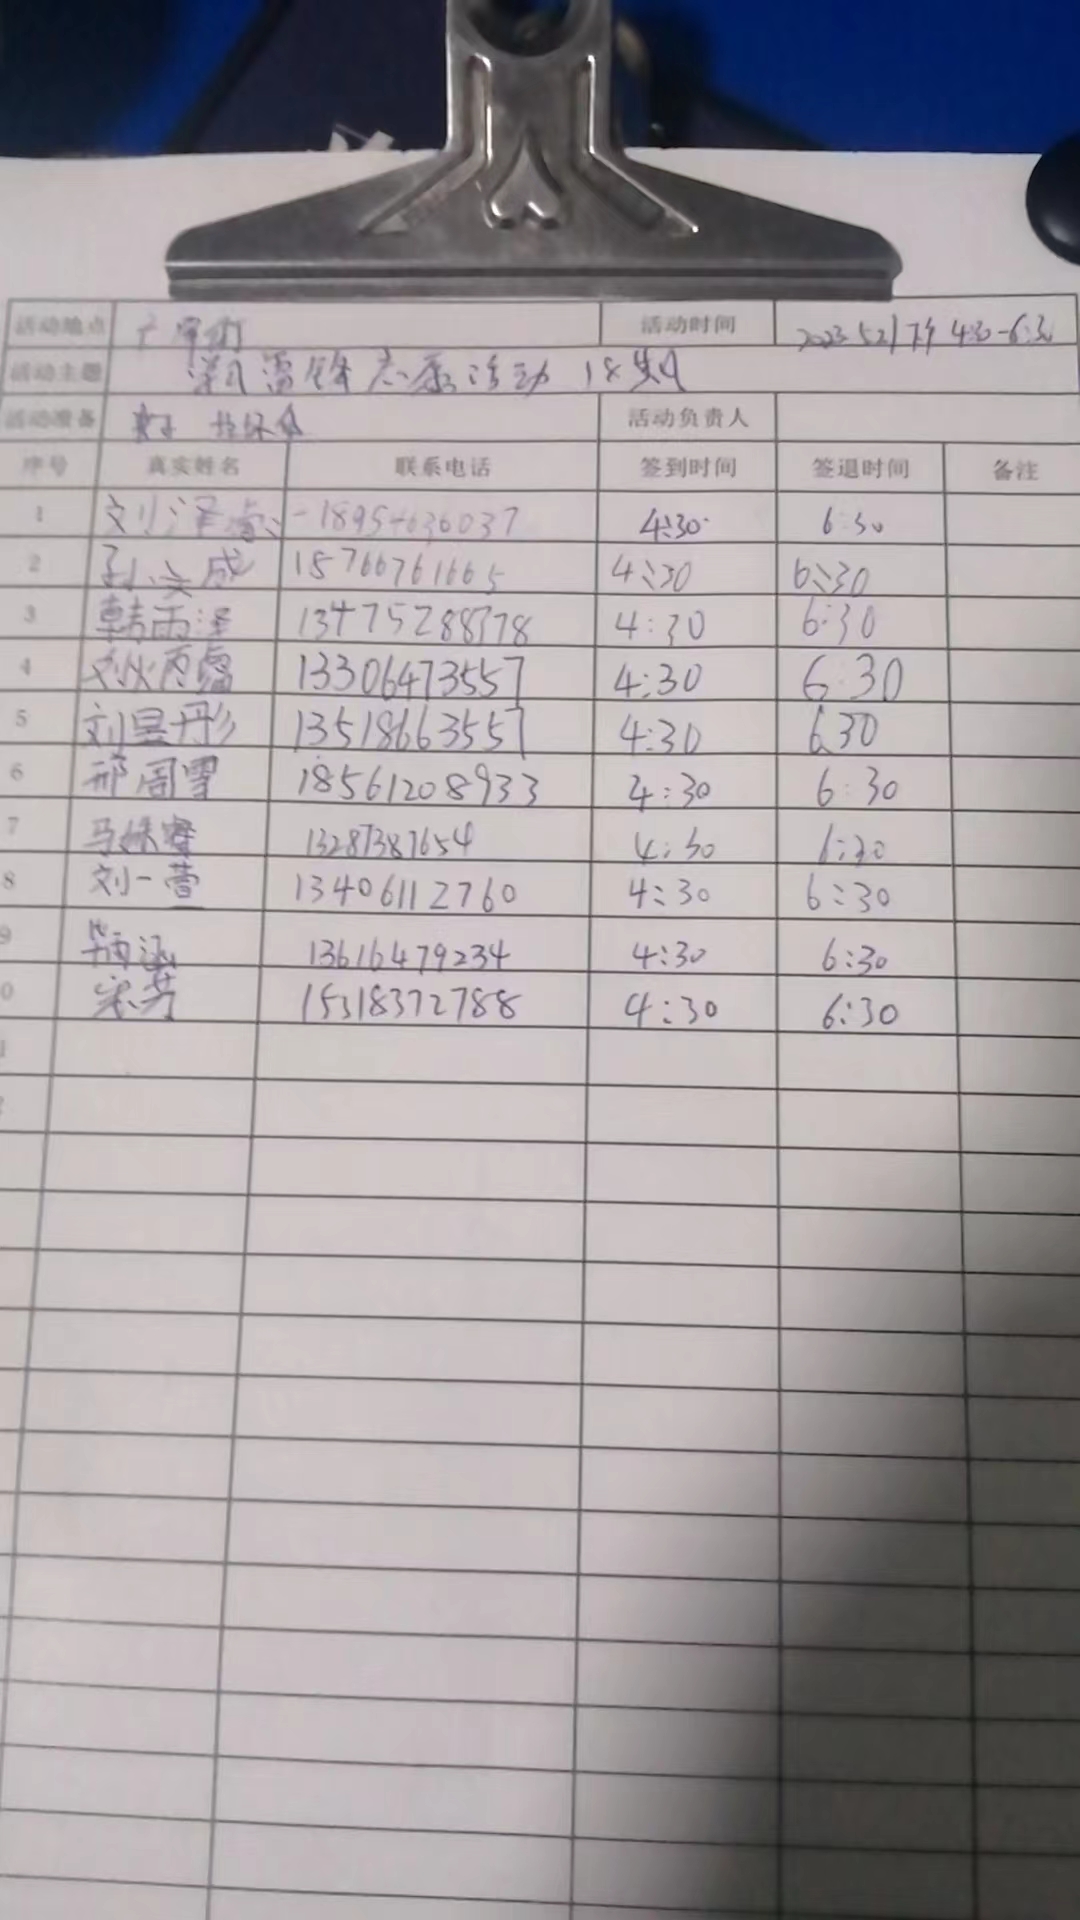 活动地点 活动时间 2023.5.21 下午 4:30-6:30
活动主题 雷锋志愿活动 18期
活动准备 活动负责人
序号 真实姓名 联系电话 签到时间 签退时间 备注
1 刘泽 18954636037 4:30 6:30
2 孙文成 15766761665 4:30 6:30
3 韩雨泽 13475288378 4:30 6:30
4 13306473557 4:30 6:30
5 刘昱彤 13518663557 4:30 6:30
6 邢周雪 18561208933 4:30 6:30
7 马姝 13287387654 4:30 6:30
8 刘一萱 13406112760 4:30 6:30
9 13616479234 4:30 6:30
0 宋芳 15318372788 4:30 6:30